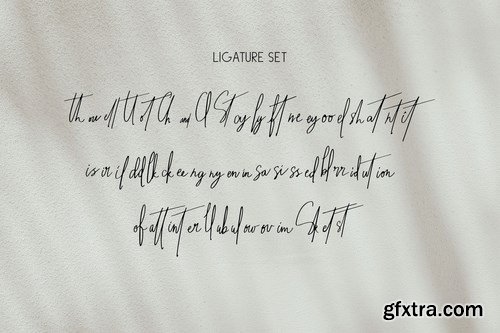 LIGATURE SET
th ow ell tt ot Ch and Cl St oy ly ft ne ey oo el sh at nt it
is ir il dd lk ck ee ng ny en in sa si ss ed bl rr id ut ion
of att int er ll ub ul ow ov im Sk et st
gfxtra.com